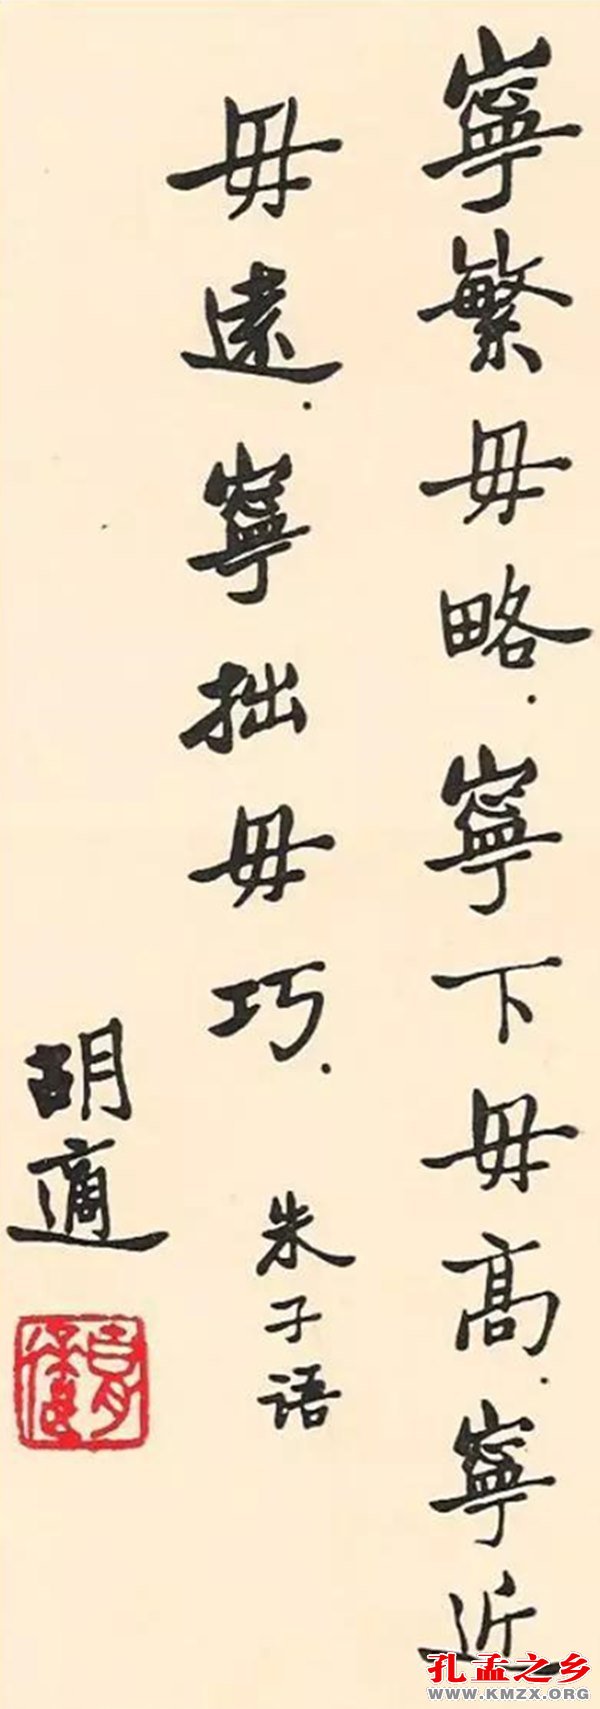 寧繁毋略.寧下毋高.寧近
毋遠.寧拙毋巧.
朱子語
胡適
孔孟之乡
WWW.KMZX.ORG